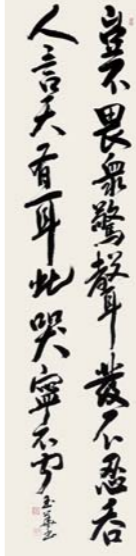 豈不畏衆驚聲發不忍吞
人言天有耳此哭寧不聞
玉華書